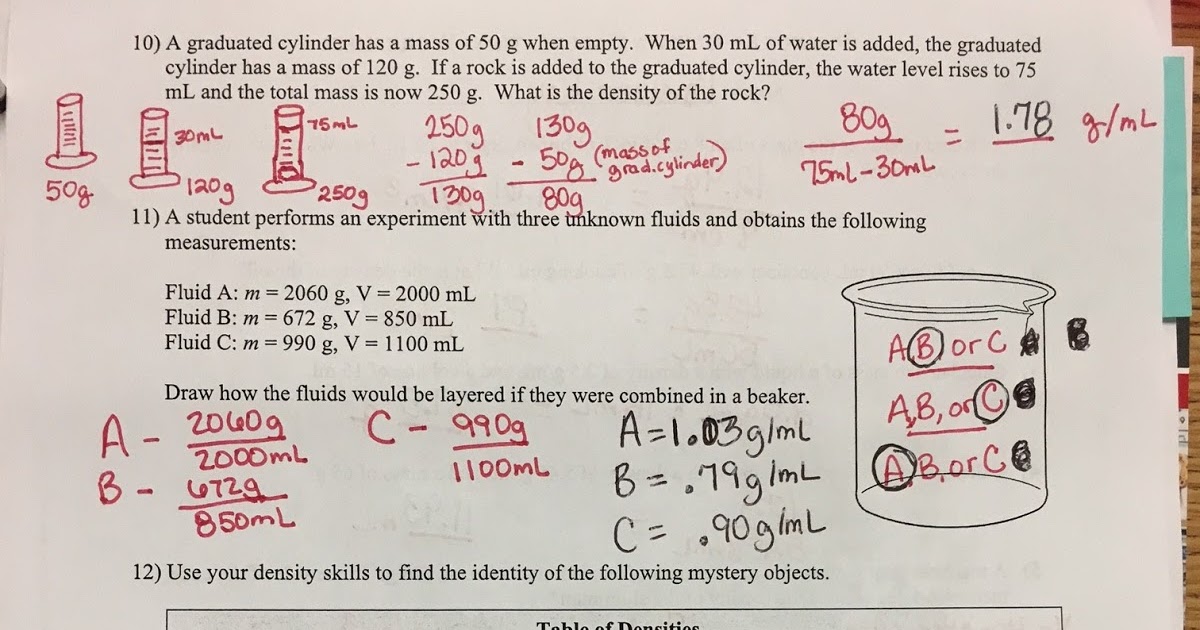 10) A graduated cylinder has a mass of 50 g when empty. When 30 mL of water is added, the graduated
cylinder has a mass of 120 g. If a rock is added to the graduated cylinder, the water level rises to 75
mL and the total mass is now 250 g. What is the density of the rock?
50g
30mL
120g
75mL
250g
250g
- 120g
130g
130g
- 50g (mass of grad.cylinder)
80g
80g
75mL-30mL
= 1.78 g/mL
11) A student performs an experiment with three unknown fluids and obtains the following
measurements:
Fluid A: m = 2060 g, V = 2000 mL
Fluid B: m = 672 g, V = 850 mL
Fluid C: m = 990 g, V = 1100 mL
Draw how the fluids would be layered if they were combined in a beaker.
A - 2060g
2000mL
B - 672g
850mL
C - 990g
1100mL
A=1.03g/mL
B= .79g/mL
C= .90g/mL
A B or C
A, B, or C
A B, or C
12) Use your density skills to find the identity of the following mystery objects.
Table of Densities